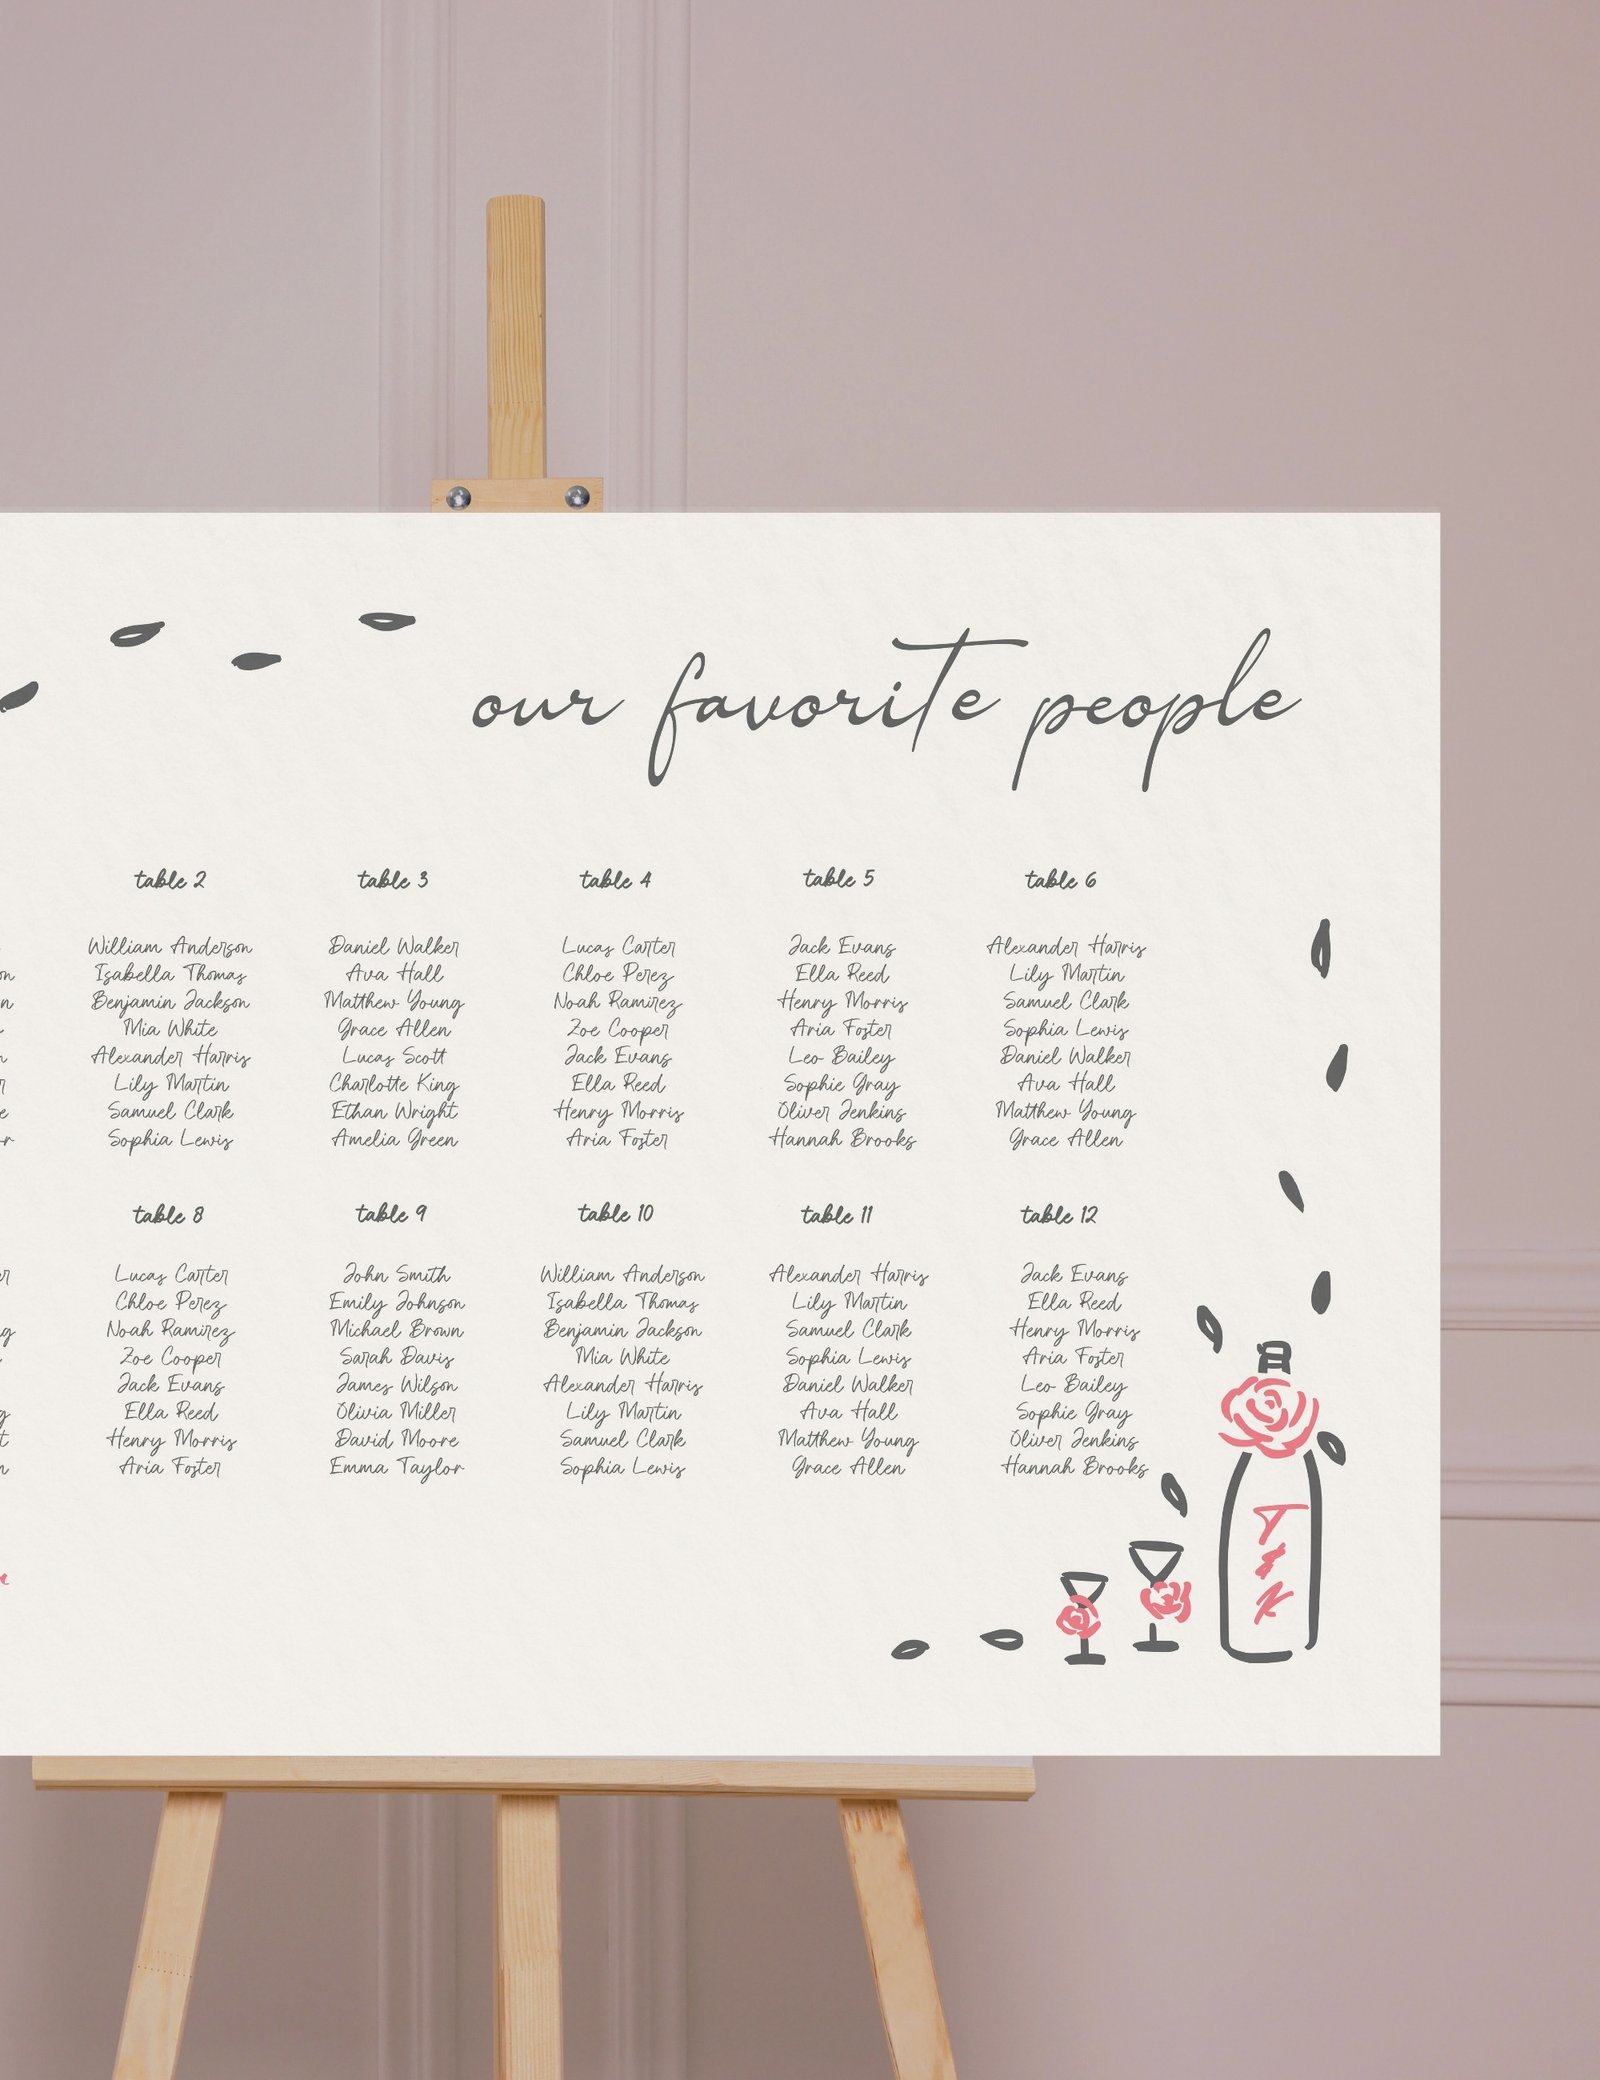 our favorite people
table 2
William Anderson
Isabella Thomas
Benjamin Jackson
Mia White
Alexander Harris
Lily Martin
Samuel Clark
Sophia Lewis
table 3
Daniel Walker
Ava Hall
Matthew Young
Grace Allen
Lucas Scott
Charlotte King
Ethan Wright
Amelia Green
table 4
Lucas Carter
Chloe Perez
Noah Ramirez
Zoe Cooper
Jack Evans
Ella Reed
Henry Morris
Aria Foster
table 5
Jack Evans
Ella Reed
Henry Morris
Aria Foster
Leo Bailey
Sophie Gray
Oliver Jenkins
Hannah Brooks
table 6
Alexander Harris
Lily Martin
Samuel Clark
Sophia Lewis
Daniel Walker
Ava Hall
Matthew Young
Grace Allen
table 8
Lucas Carter
Chloe Perez
Noah Ramirez
Zoe Cooper
Jack Evans
Ella Reed
Henry Morris
Aria Foster
table 9
John Smith
Emily Johnson
Michael Brown
Sarah Davis
James Wilson
Olivia Miller
David Moore
Emma Taylor
table 10
William Anderson
Isabella Thomas
Benjamin Jackson
Mia White
Alexander Harris
Lily Martin
Samuel Clark
Sophia Lewis
table 11
Alexander Harris
Lily Martin
Samuel Clark
Sophia Lewis
Daniel Walker
Ava Hall
Matthew Young
Grace Allen
table 12
Jack Evans
Ella Reed
Henry Morris
Aria Foster
Leo Bailey
Sophie Gray
Oliver Jenkins
Hannah Brooks
&
K